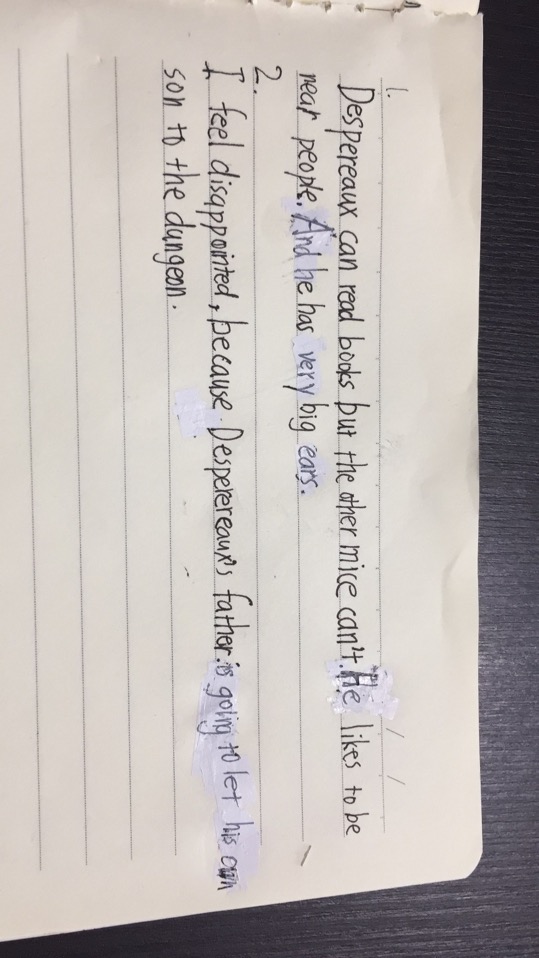 1.
Despereaux can read books but the other mice can't. He likes to be
near people. And he has very big ears.
2.
I feel disappointed, because Desperereaux's father is going to let his own
son to the dungeon.